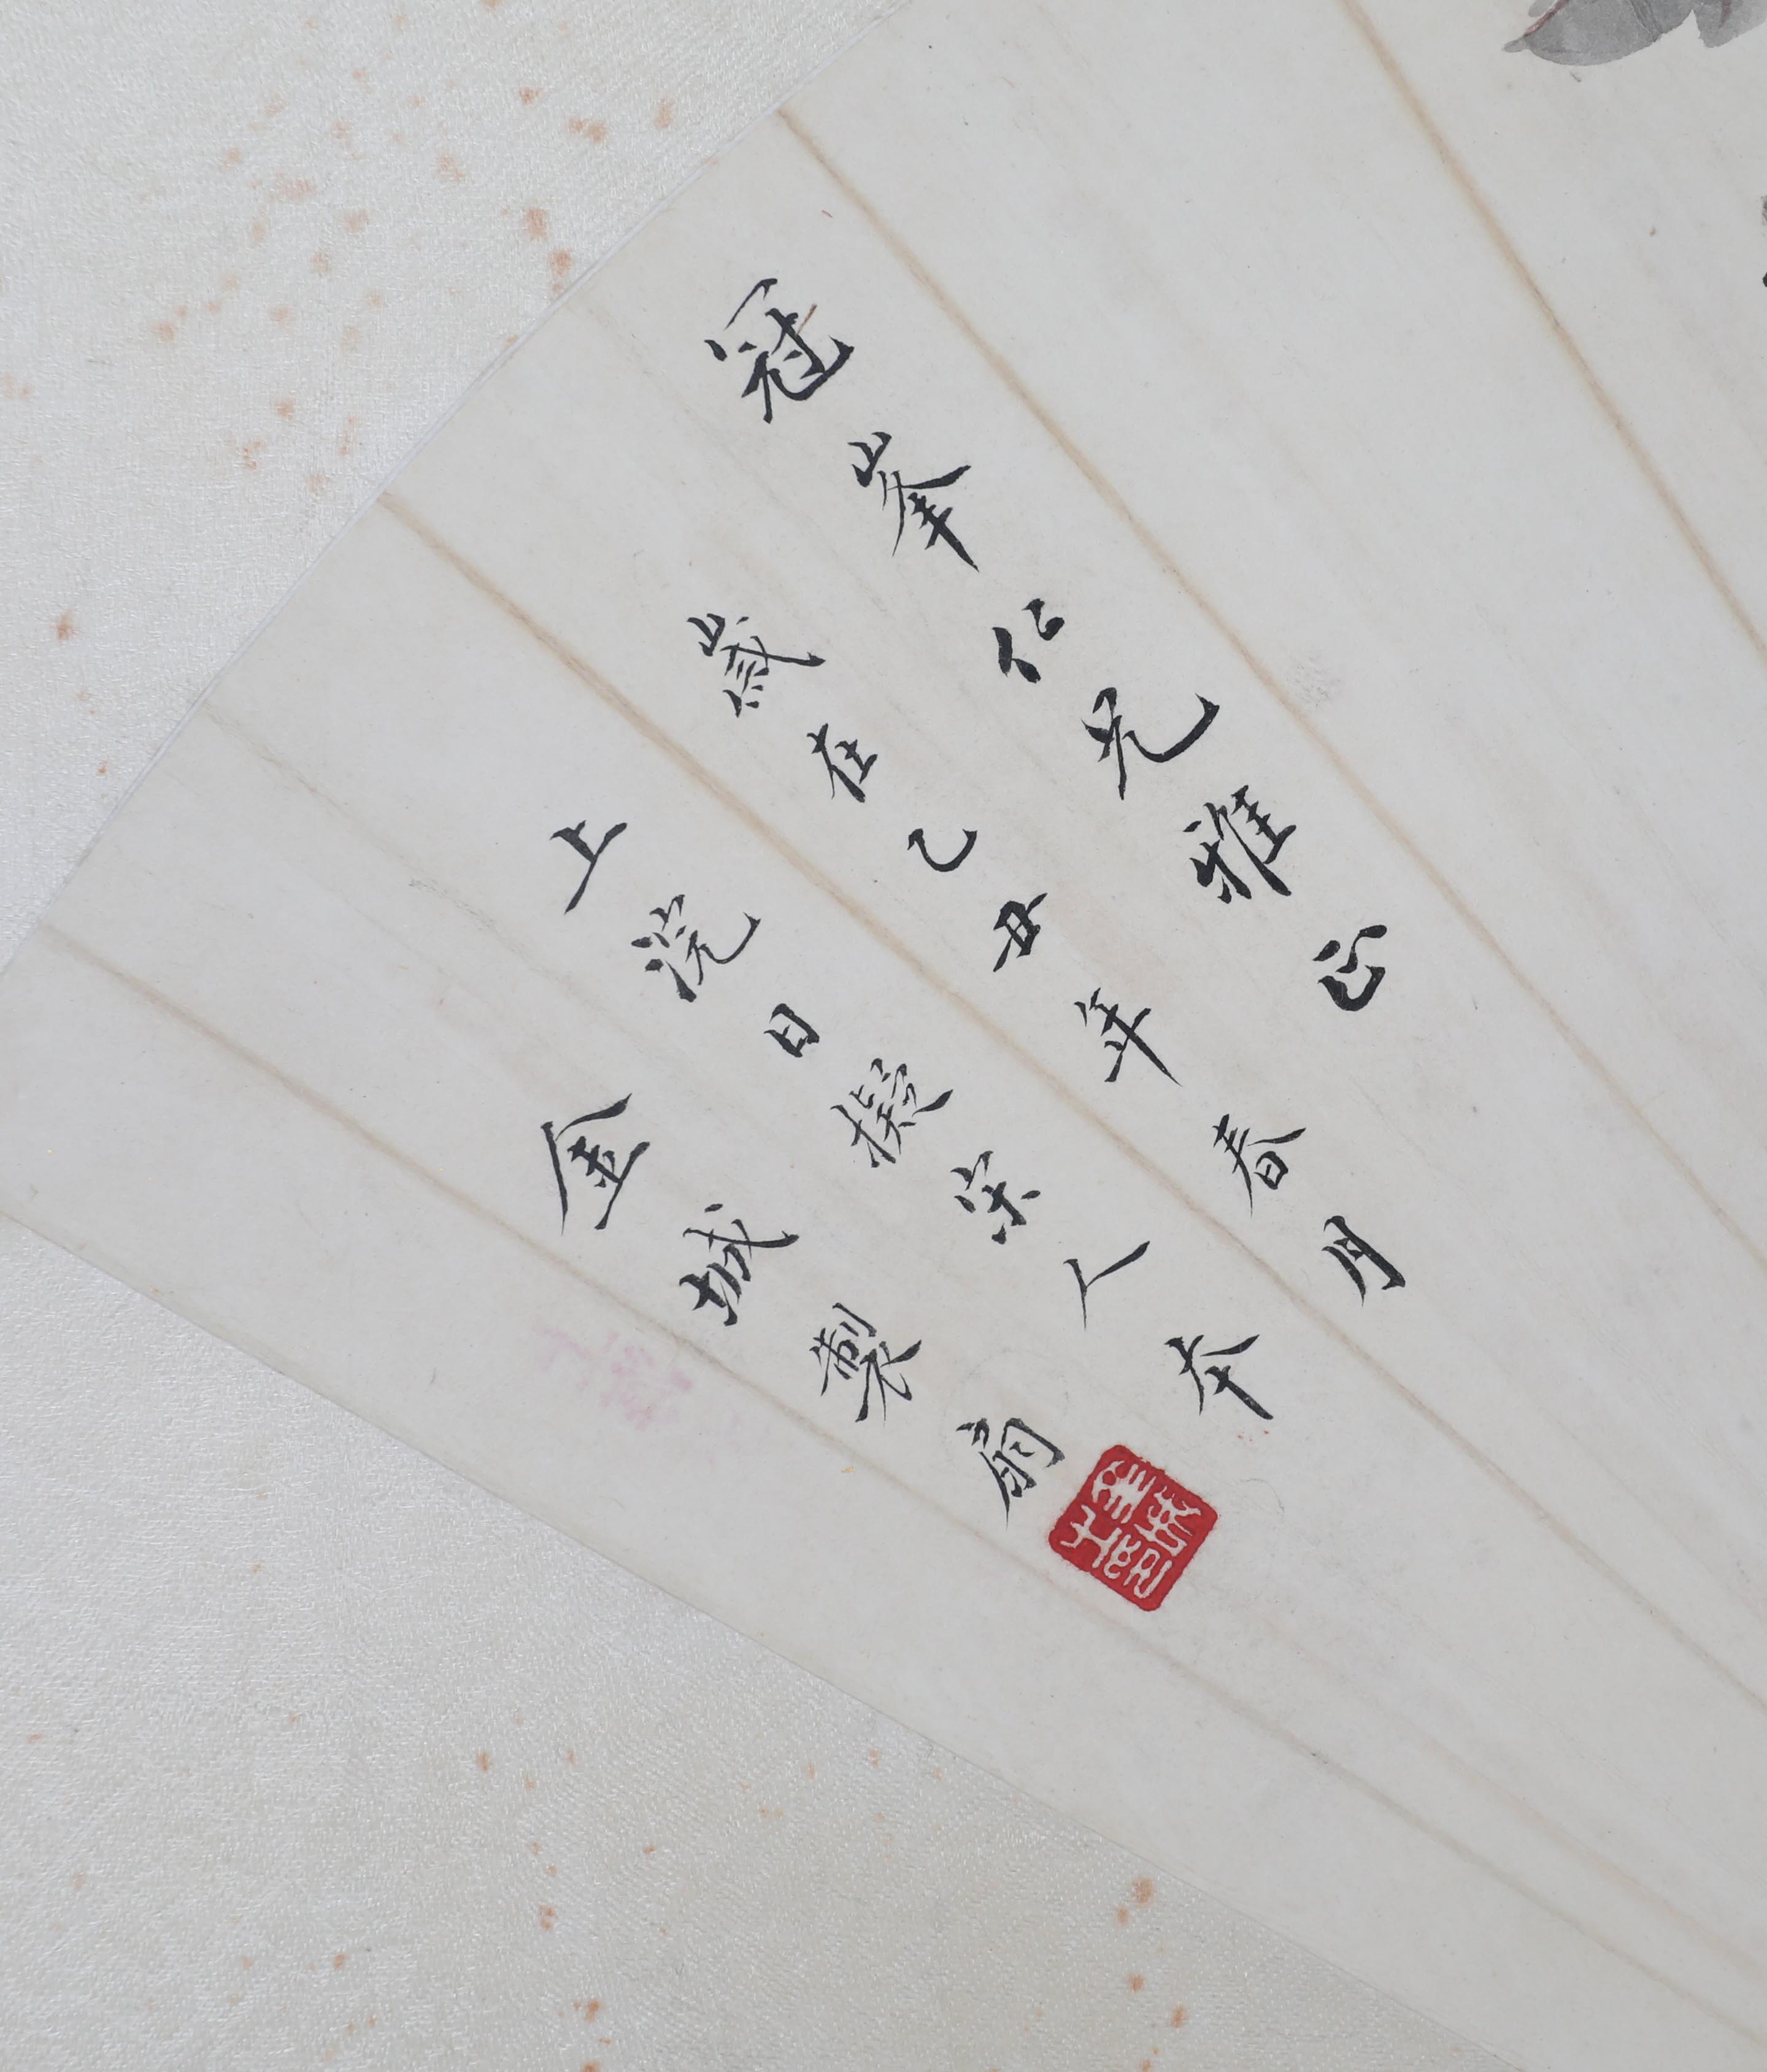 冠峯仁兄雅正
歲在乙丑年春月
上浣日擬宋人本
金城製扇